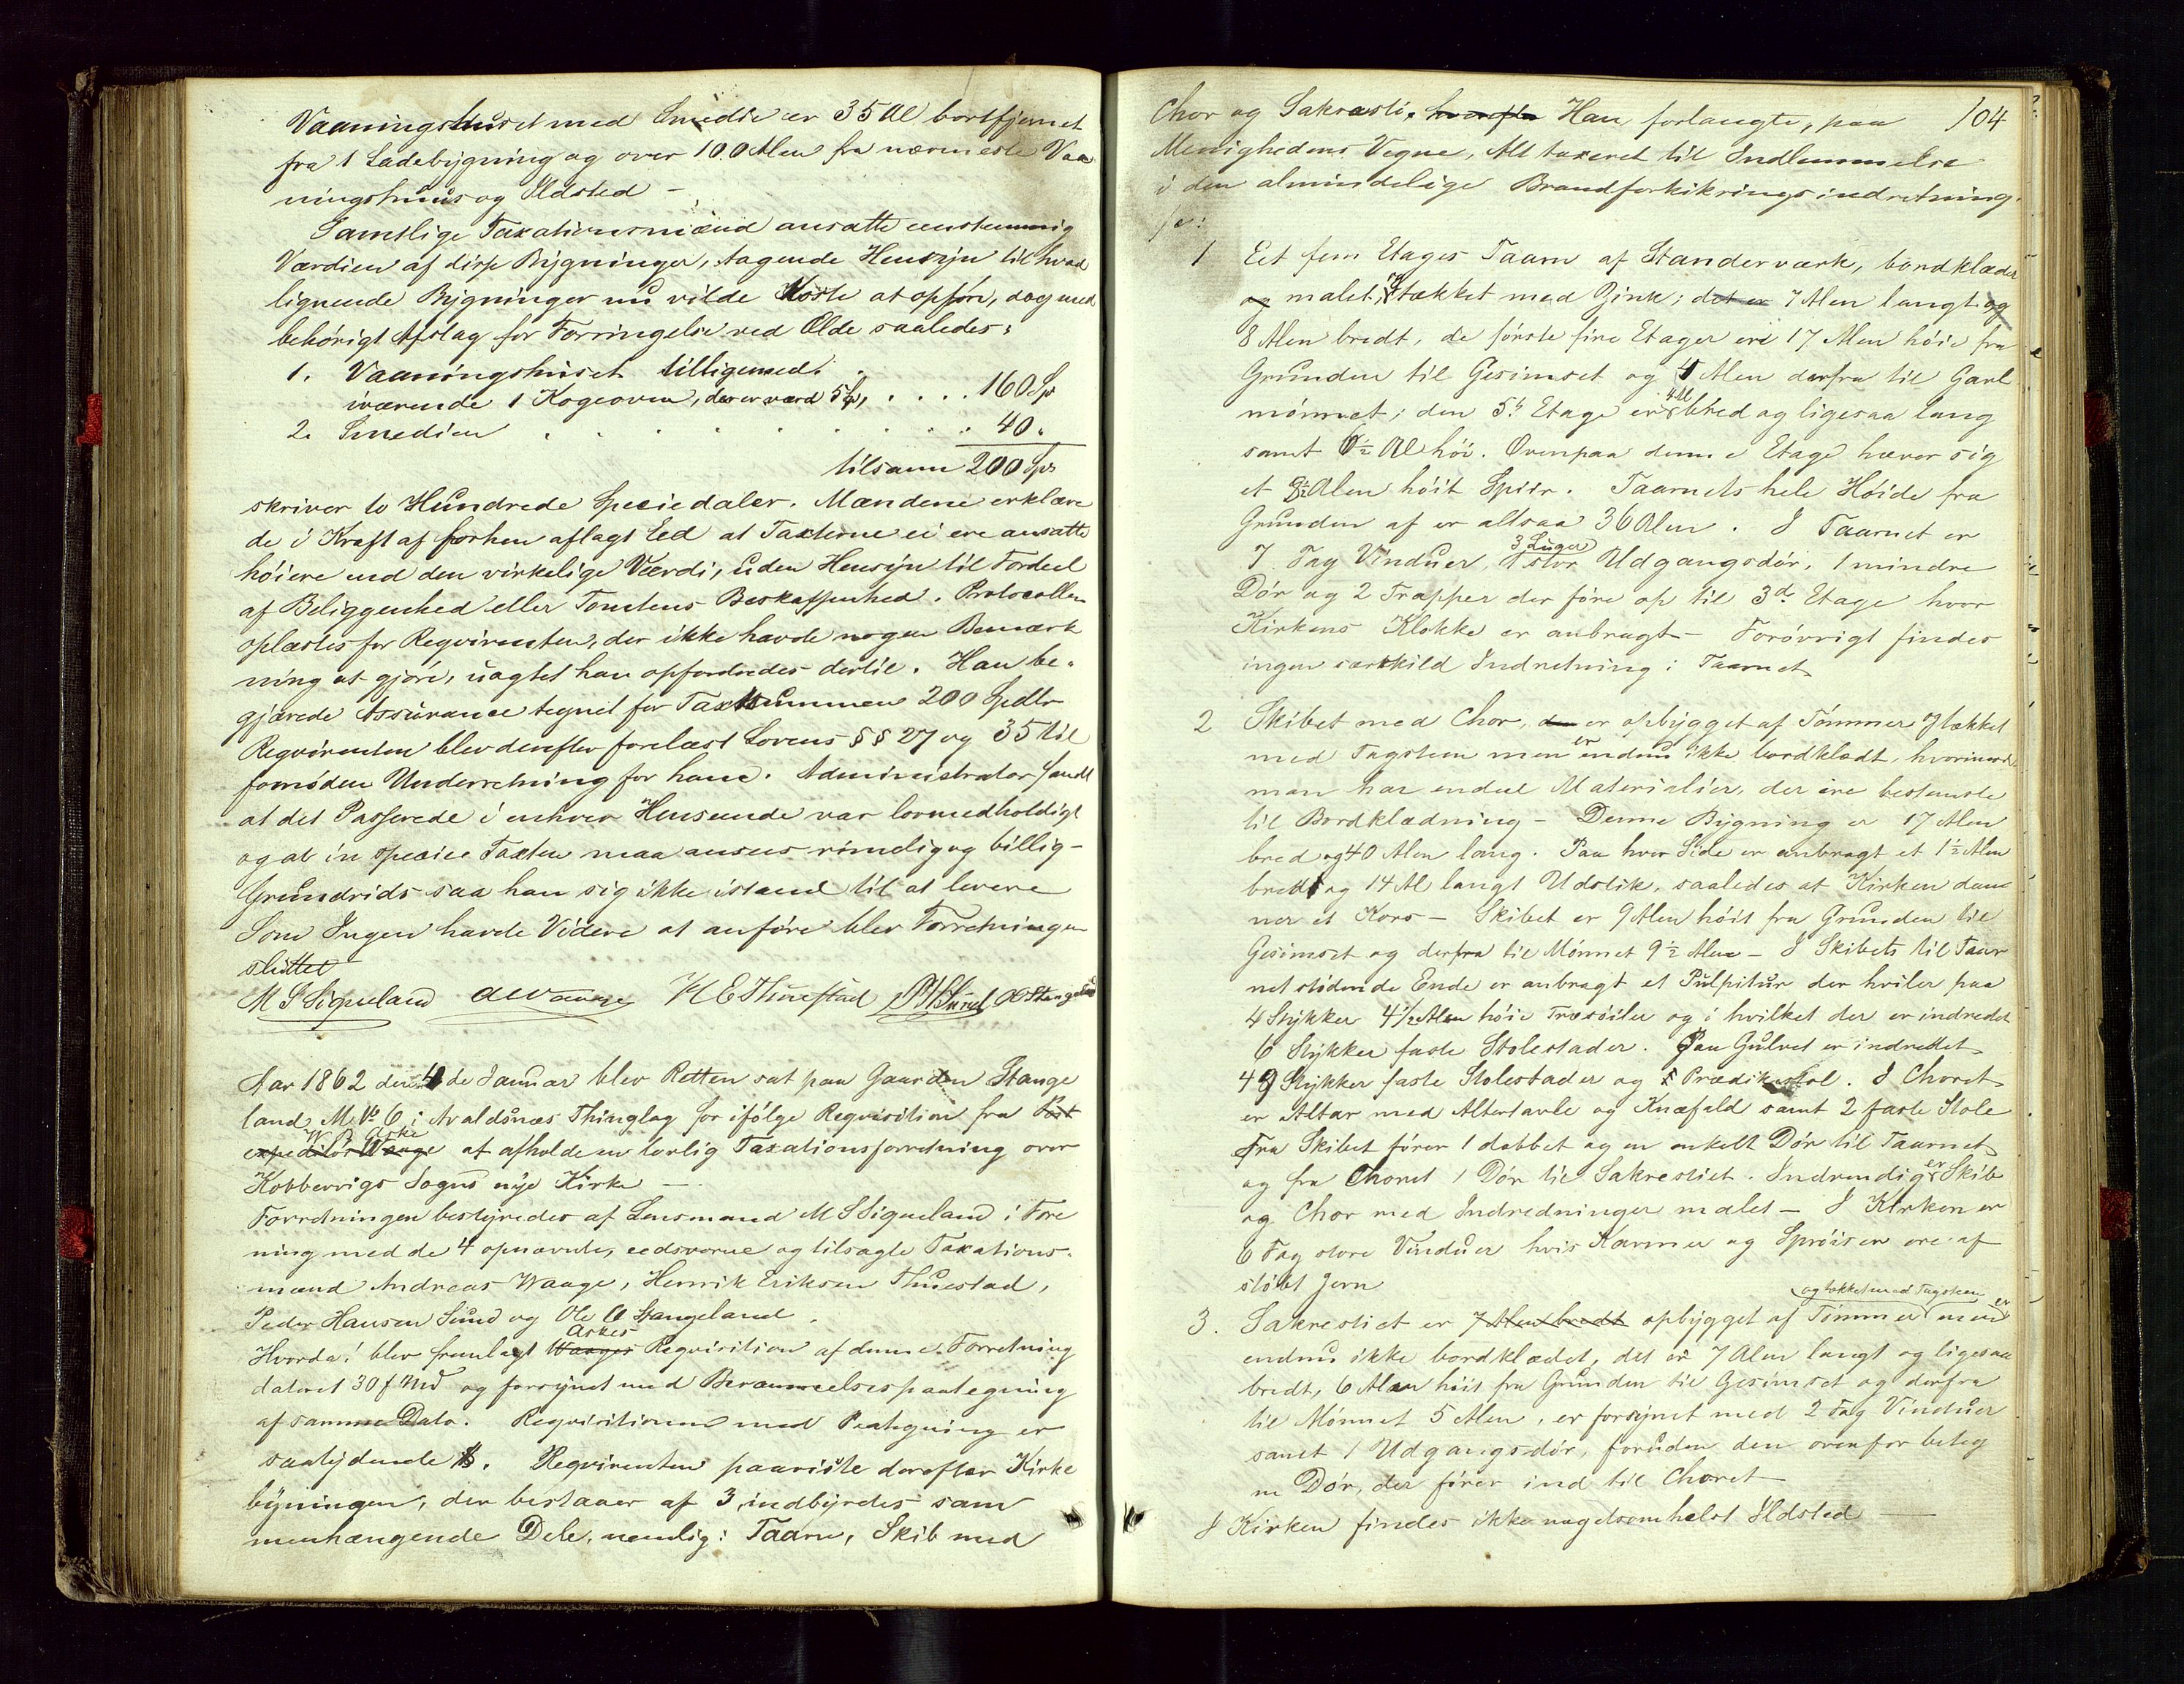 Vaaningshuset med Smedie er 35 Al bortfjernet
fra 1 Ladebygning og over 100 Alen fra nærmeste Vaa
ningshuus og Ildsted –
Samtlige Taxationsmænd ansatte eenstemmig
Værdien af disse Bygninger, tagende Hensyn til hvad
lignende Bygninger nu vilde koste at opføre, dog med
behørigt Afslag for Foringelse ved Ælde saaledes:
1. Vaaningshuset tilligemed i
værende 1 Kogeovn, der er værd 5 Sp, . . . . 160 Sp
2. Smedien . . . . . . . . 40 "
tilsamm 200 Sp
skriver to Hundrede Speciedaler. Mændene erklære
de i Kraft af forhen aflagt Eed at Taxterne ei ere ansatte
høiere end den virkelige Værdi, uden Hensyn til Fordeel
af Beliggenhed eller Tomtens Beskaffenhed. Protocollen
oplæstes for Reqvirenten, der ikke havde nogen Bemærk
ning at gjøre, uagtet han opfordredes dertil. Han be-
gjærede Assurance tegnet for Taxtsummen 200 Spdlr
Reqvirenten blev derefter forelæst Lovens §§ 27 og 35 til
fornøden Underretning for ham. Administrator fandt
at det Passerede i enhver Henseende var lovmedholdigt
og at in specie Taxten maa ansees rimelig og billig –
Grundrids saa han sig ikke istand til at levere
Som Ingen havde Videre at anføre blev Forretningen
sluttet
M S Siqveland AWaage H E Thuestad PHSund O O Stangeland
Aar 1862 den de Januar blev Retten sat paa Gaarden Stange
land M No 6 i Avaldsnæs Thinglag for ifølge Reqvisition fra Post
W D Aske
expeditør Waage at afholde en lovlig Taxationsforretning over
Kobbervigs Sogns nye Kirke –
Forretningen bestyredes af Lensmand M S Siqveland i Fore
ning med de 4 opnævnte, eedsvorne og tilsagte Taxations-
mænd Andreas Waage, Henrik Eriksen Thuestad,
Peder Hansen Sund og Ole O Stangeland.
Askes
Hvorda! blev fremlagt Waages Reqvisition af denne Forretning
dateret 30 f Md og forsynet med Berammelsespaategning
af samme Dato. Reqvisitionen med Paategning er
saalydende. Reqvirenten paaviste derefter Kirke
bygningen, der bestaaer af 3, indbyrdes sam
menhængende Dele, nemlig: Taarn, Skib med
Chor og Sakresti, hvorefter Han forlangte, paa 104
Menighedens Vegne, Alt taxeret til Indlemmelse
i den almindelige Brandforsikringsindretning.
1 Eet fem Etages Taarn af Standerværk, bordklædet
og malet, tækket med Zink; det er 7 Alen langt og
8 Alen bredt, de første fire Etager ere 17 Alen høie fra
Grunden til Gesimset og 4 Alen derfra til Gavl
mønnet; den 5te Etage er 4 Al bred og ligesaa lang
samt 6½ Al høi. Ovenpaa denne Etage hæver sig
et 8½ Alen høit Spiir. Taarnets hele Høide fra
Grunden af er altsaa 36 Alen. I Taarnet er
3 Luger
7 Fag Vinduer, 1 stor Udgangsdør, 1 mindre
Dør og 2 Trapper der føre op til 3de Etage hvor
Kirkens Klokke er anbragt – Forøvrigt findes
ingen særskild Indretning i Taarnet
2 Skibet med Chor, er opbygget af Tømmer og tækket
med Tagsteen men er endnu ikke bordklædt, hvorimod
man har endeel Materialier, der ere bestemte
til Bordklædning – Denne Bygning er 17 Alen
bred og 40 Alen lang. Paa hver Side er anbragt et 1½ Alen
bredt og 14 Al langt Udstik, saaledes at Kirken dan
ner et Kors – Skibet er 9 Alen høit fra Grunden til
Gesimset og derfra til Mønnet 9½ Alen – I Skibets til Taar
net stødende Ende er anbragt et Pulpitur der hviler paa
4 Stykker 4½ Alen høie Træsøiler og i hvilket der er indredet
6 Stykker faste Stolestader. Paa Gulvet er indredet
49 Stykker faste Stolestader og 1 Prædikestol. I Choret
er Altar med Altertavle og Knæfald samt 2 faste Stole
Fra Skibet fører 1 dobbet og en enkelt Dør til Taarnet
og fra Choret 1 Dør til Sakrestiet. Indvendig er Skib
og Chor med Indredninger malet – I Kirken er
6 Fag store Vinduer hvis Karmer og Sprøiser ere af
støbt Jern
og tækket med Tagsteen
3. Sakrestiet er 7 Alen bredt opbygget af Tømmer men er
endnu ikke bordklædet, det er 7 Alen langt og ligesaa
bredt, 6 Alen høit fra Grunden til Gesimset og derfra
til Mønnet 5 Alen, er forsynet med 2 Fag Vinduer
samt 1 Udgangsdør, foruden den ovenfor beteg
ne Dør, der fører ind til Choret
I Kirken findes ikke nogetsomhelst Ildsted –